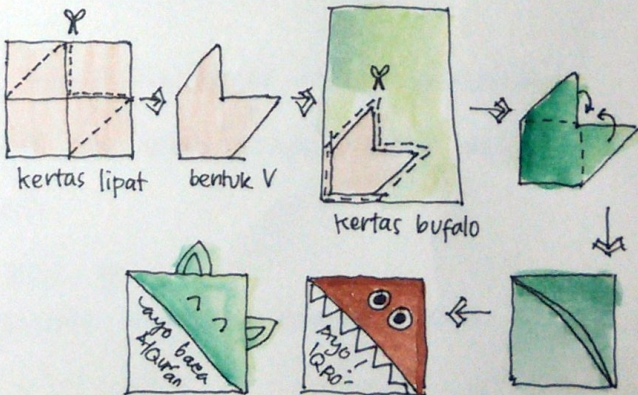 kertas lipat
bentuk V
kertas bufalo
ayo baca
Al Qur'an
Ayo!
IQRO!